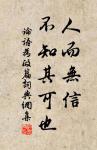 人而無信
不知其可也
論語為政篇詞典網集